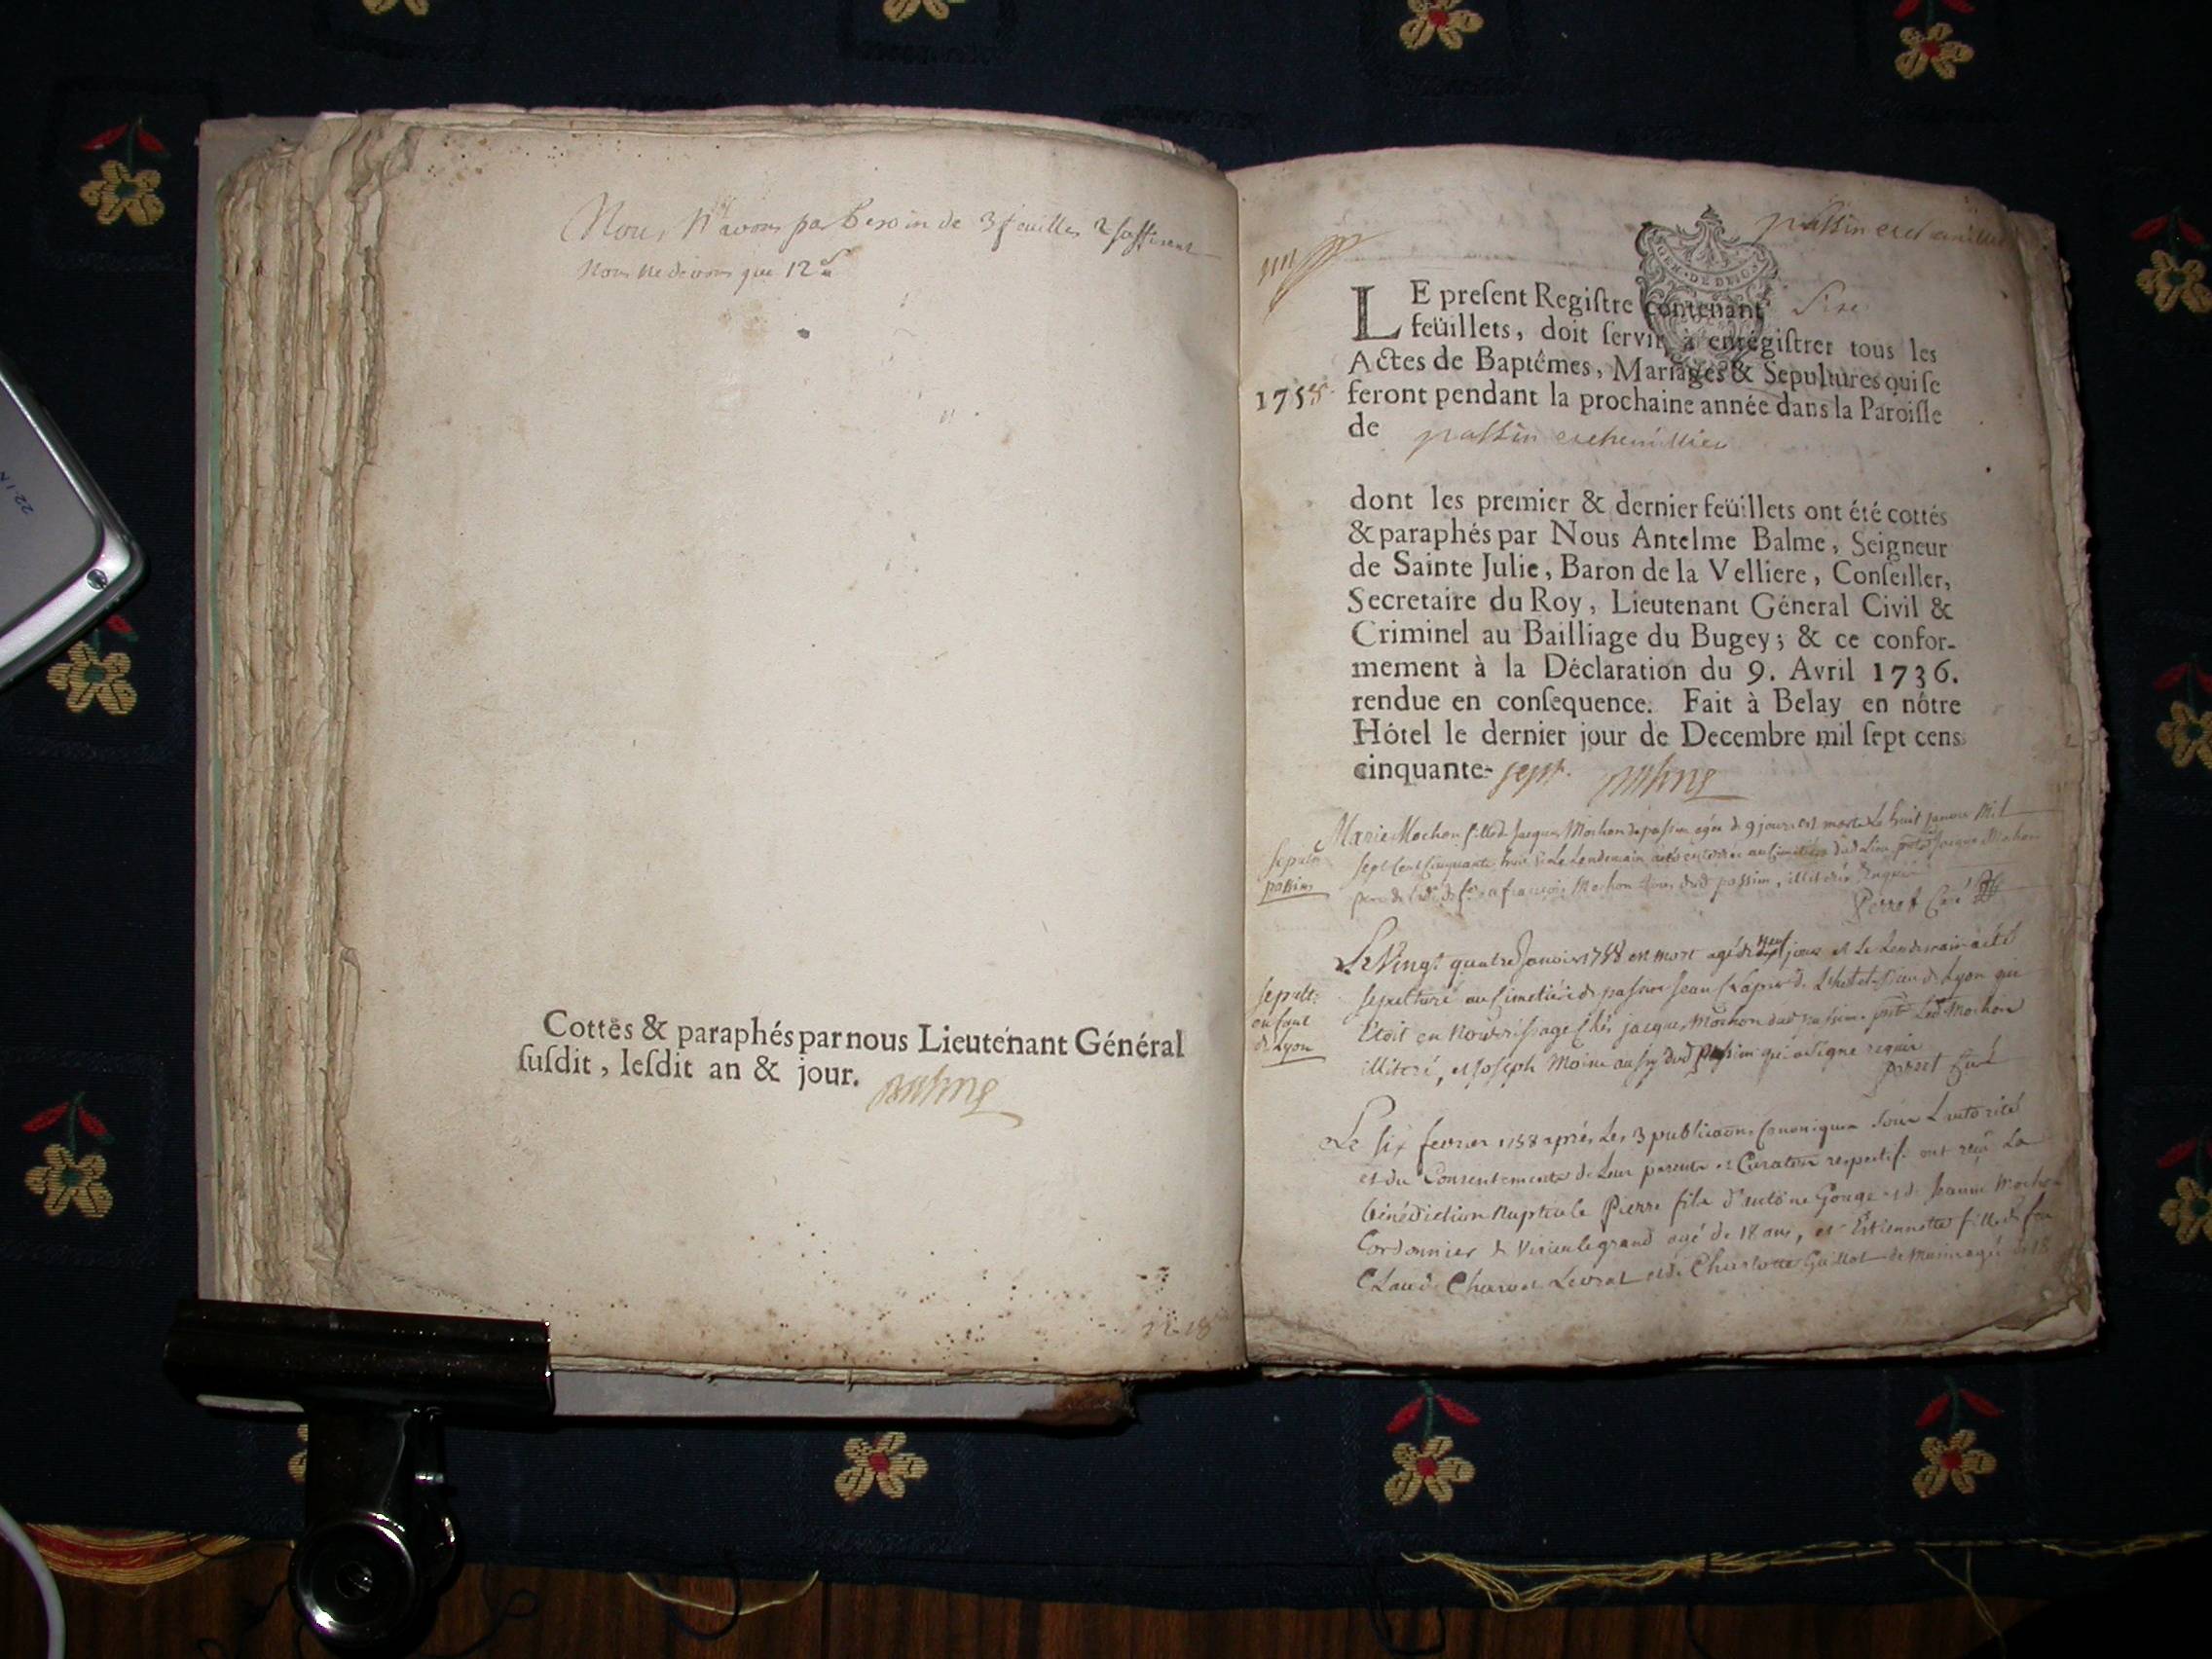 Nous N'avons pas Besoin de 3 feuilles 2 suffisent
Nous ne devons que 12 s
Cottés & paraphés par nous Lieutenant Général
ſuſdit, leſdit an & jour.
Balme
passin et chemillieu
GEN · DE DIJON
LE preſent Regiſtre contenant Sixe
feüillets, doit ſervir à enrégiſtrer tous les
Actes de Baptêmes, Mariages & Sepultures qui ſe
1758 feront pendant la prochaine année dans la Paroiſſe
de passin et chemillieu
dont les premier & dernier feüillets ont été cottés
& paraphés par Nous Antelme Balme, Seigneur
de Sainte Julie, Baron de la Velliere, Conſeiller,
Secretaire du Roy, Lieutenant Général Civil &
Criminel au Bailliage du Bugey; & ce confor-
mement à la Déclaration du 9. Avril 1736.
rendue en conſequence. Fait à Belay en nôtre
Hôtel le dernier jour de Decembre mil ſept cens
cinquante- sept. Balme
Marie Mochon fille de Jacques Mochon de passin agée de 9 jours est morte Le huit janvier Mil
sept Cent Cinquante huit et Le Lendemain a été enterrée au Cimetière dud Lieu Jacque Mochon
pere de François Mochon passin, illiterés Requis
Perret Curé
sepult
passin
Le Vingt quatre Janvier 1758 est mort agé de neuf jours et Le Lendemain a été
sepulturé au Cimetière de passin Jean de L'hotel-Dieu de Lyon qui
Etoit en Nourrissage Chés jacques Mochon dud passin Led Mochon
illiteré, et Joseph Moine aussy dud passin qui a signé requis
perret Curé
sepult:
enfant
de Lyon
Le six fevrier 1758 après Les 3 publicaons Canoniques Sous L'autorité
et du Consentement de Leur parents et Curateur respectifs ont reçu La
bénédiction Nuptiale Pierre fils d'Antoine Gouge et de Jeanne Mochon
Cordonnier de Virieu le grand agé de 18 ans, et Estiennette fille de feu
Claude Charvet Levrat et de Charlotte Guillot de agée de 18